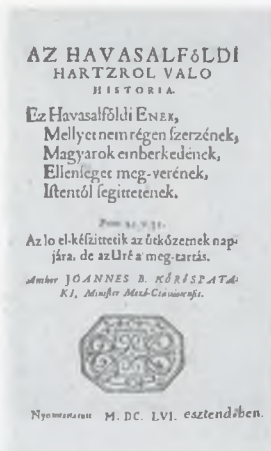 AZ HAVASALFőLDI
HARTZROL VALO
HISTORIA.
Ez Havasalfőldi ENEK,
Mellyet nem régen szerzének,
Magyarok emberkedének,
Ellenséget meg-verének,
Istentől segittetének.
Az lo el-készittetik az űtkőzetnek nap-
jára, de az Uré a' meg-tartás.
Author JOANNES B. KŐRŐSPATA-
KI, Minister
M. DC. LVI. esztendőben.